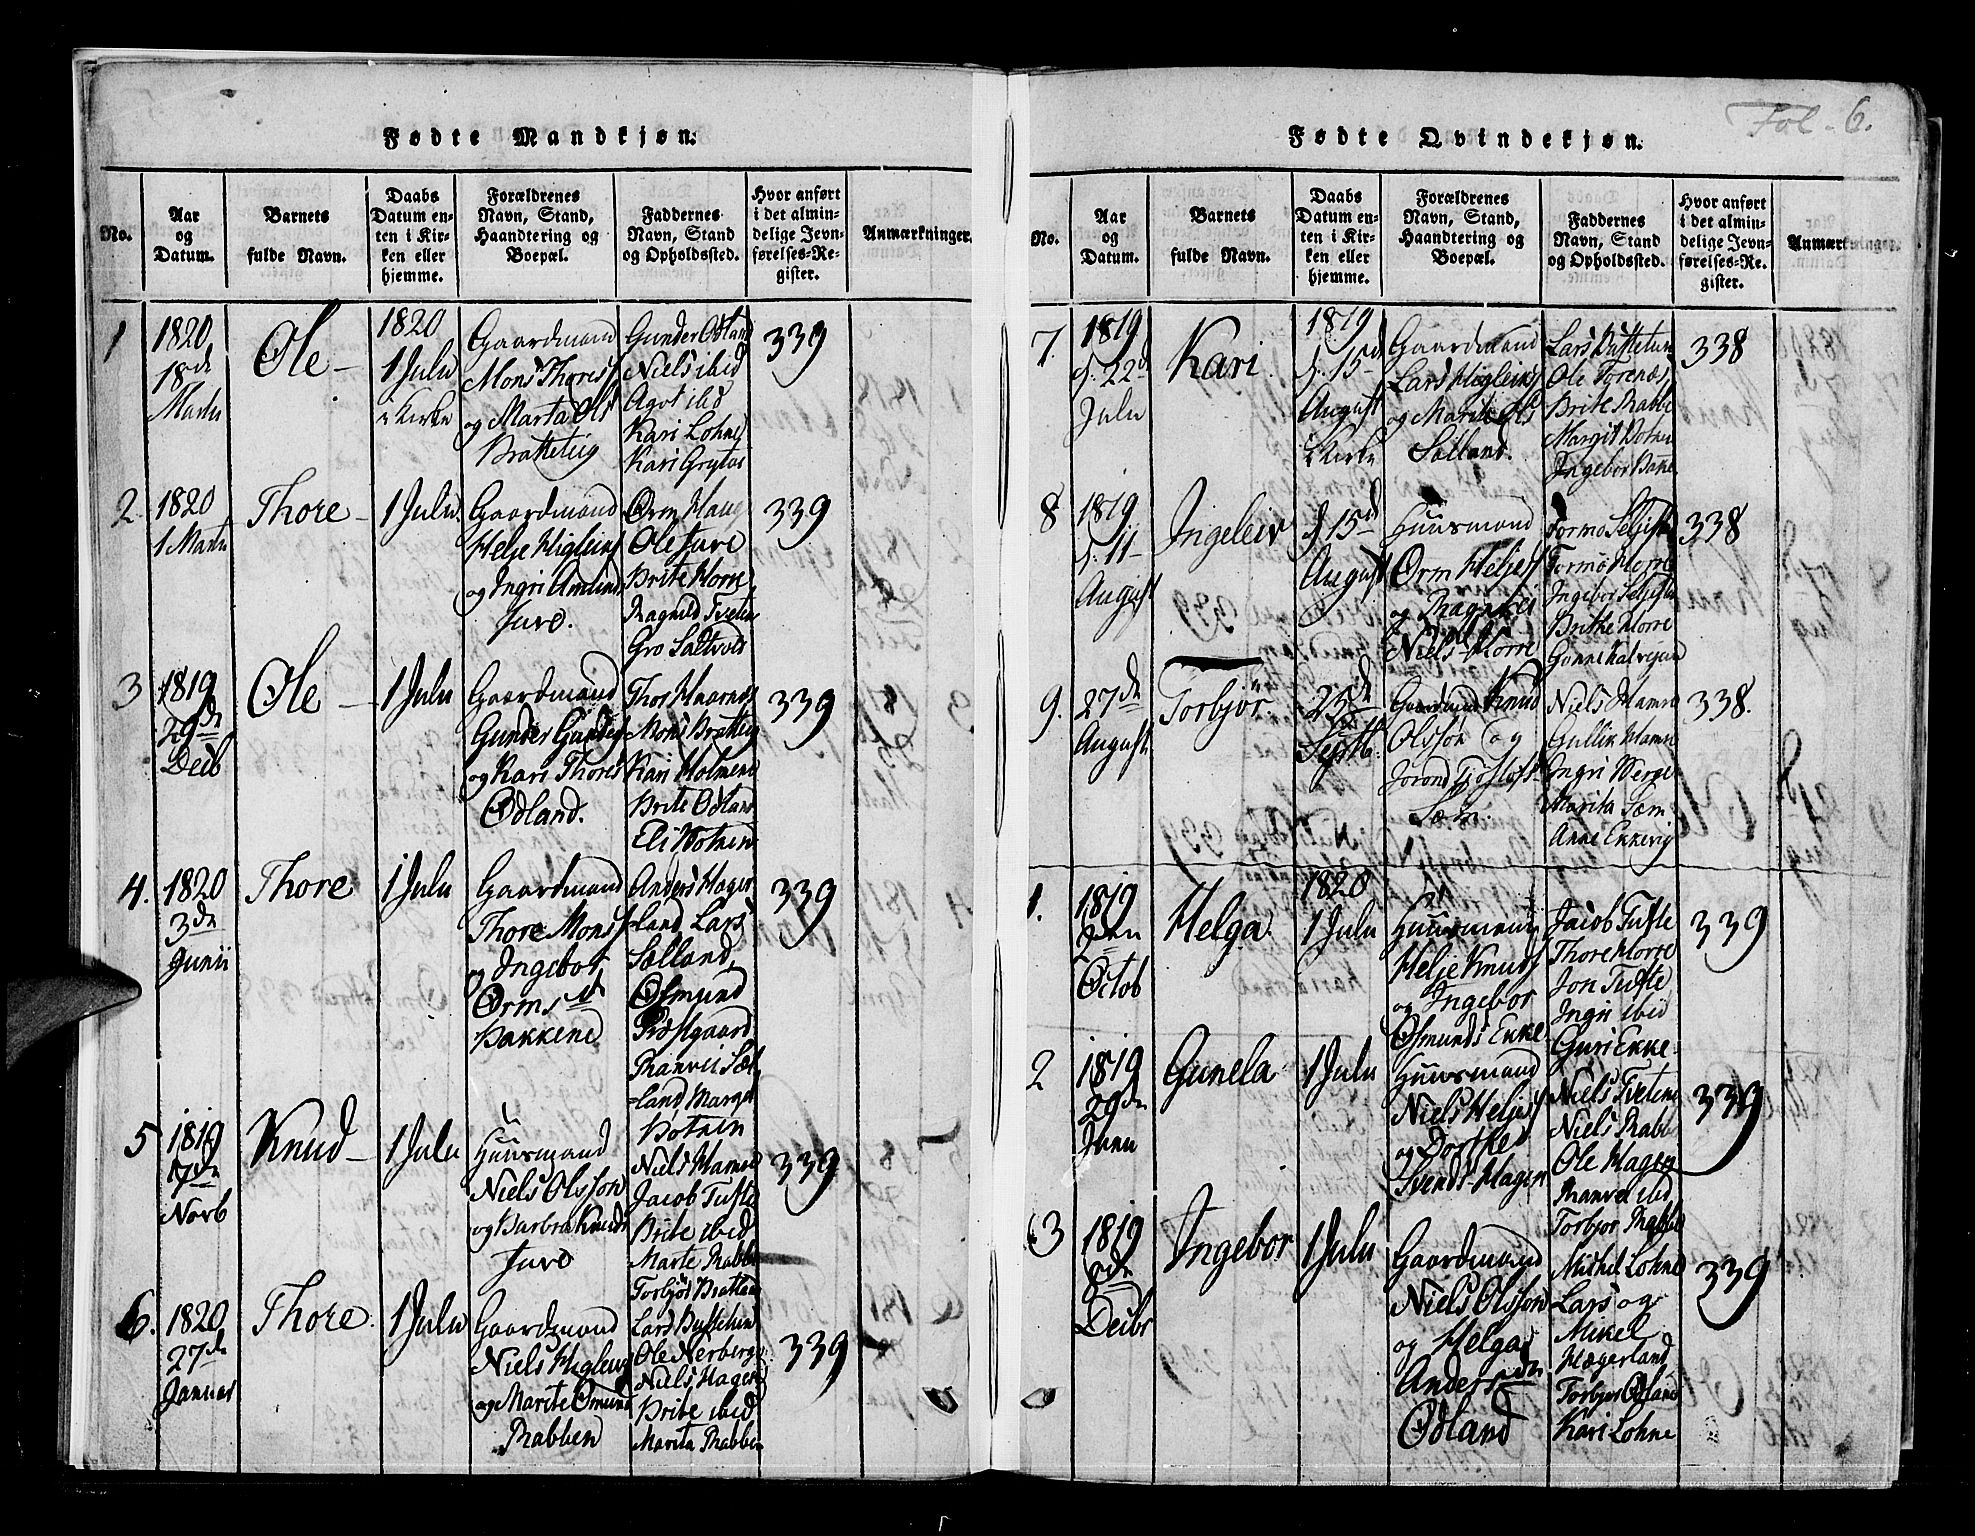 Fol. 6.
Fødte Mandkjøn.
No.
Aar
og
Datum.
Barnets
fulde Navn.
Daabs
Datum en-
ten i Kir-
ken eller
hjemme.
Forældrenes
Navn, Stand,
Haandtering og
Boepæl.
Faddernes
Navn, Stand
og Opholdssted.
Hvor anført
i det almin-
delige Jevn-
førelses-Re-
gister.
Anmærkninger.
1
1820
18de
Martii
Ole
1820
1 Julu
i Kirke
Gaardmand
Mons Thoress
og Marta Ols
Bratteteig
Gunder Odland
Niels ibid
Agot ibid
Kari Lohne
Kari Grytas
339
2.
1820
1 Martii
Thore
1 Julu.
Gaardmand
Helje Higleiks
og Ingri Amunds
Juve.
Orm Haug
Ole Juve
Brite Horre
Ragnild Tveten
Gro Saltvold
339
3
1819
29de
Decb
Ole
1 Julu
Gaardmand
Gunder Gunders
og Kari Thores
Odland.
Thor Haarnes
Mons Bratteig
Kari Holmene
Brite Odland
Eli Votnen
339
4.
1820
3de
Junii
Thore
1 Julu
Gaardmand
Thore Monss
og Ingebor
Ormsd
Bakkene
Anders Hæger
land Lars
Sælland,
Osmund
Præstgaard
Ranvei Sæl
land Marget
Votnen
339
5
1819
17de
Novb
Knud
1 Julu
Huusmand
Niels Olsson
og Barbra Knuds
Juve
Niels Mamre
Jacob Tufte
Brite ibid
Marte Rabbe
Torbjør Bratten
339
6.
1820
27de
Januar
Thore.
1 Julu
Gaardmand
Niels Higleiks
og Marite Omunds
Rabben
Lars Buftetun
Ole Nerberge
Niels Hagen
Brite ibid
Marita Rabben
339
Fødte Qvindekjøn.
No.
Aar
og
Datum.
Barnets
fulde Navn.
Daabs
Datum en-
ten i Kir-
ken eller
hjemme.
Forældrenes
Navn, Stand,
Haandtering og
Boepæl.
Faddernes
Navn, Stand
og Opholdssted.
Hvor anført
i det almin-
delige Jevn-
førelses-Re-
gister.
Anmærkninger.
7.
1819
d. 22d
Julu
Kari
1819
d. 15d
August
i Kirke
Gaardmand
Lars Higleiks
og Marite Ols
Sælland.
Lars Buftetun
Ole Torenæs
Brite Rabbe
Margit Votnen
Ingebor Bakke
338
8
1819
d. 11
August
Ingeleiv
d 15d
August
Huusmand
Orm Heljess
og Ragnhei
Niels Horre
Tormo Seljestad
Tormo Horre
Ingebor Seljestad
Brithe Horre
Gunne Kalvejun
338
9.
27de
August
Torbjör.
25de
Septb.
Gaardmand Knud
Olssøn og
Jorond Tjøstofs
Sæm.
Niels Mamre
Gullik Mamre
Ingri Werge
Marita Sæm
Anne Ekkevig
338.
1.
1819
Octob
Helga.
1820
1 Julu
Huusmand
Helje Knuds
og Ingebor
Osmunds Ekke
Jacob Tufte
Thore Horre
Jon Tufte
Ingri ibid
Guri Ekke
339
2
1819
29de
Junu
Gunela
1 Julu
Huusmand
Niels Heljess
og Dorthe
Svends Hagen
Niels Tvetene
Niels Rabbe
Ole Hagen
Ranvei ibid
Torbjor Rabbe
339
3
1819
8de
Decbr
Ingebor
1 Julu
Gaardmand
Niels Olsson
og Helga
Andersdn
Odland
Mikel Lohne
Lars og
Mikel
Hægerland
Torbjor Odland
Kari Lohne
339